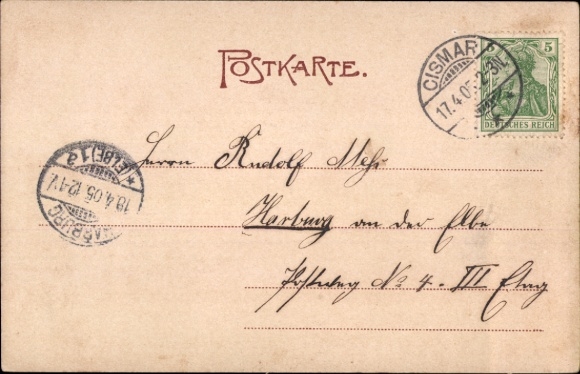 POSTKARTE.
CISMAR
17.4.05 2-3N.
5
DEUTSCHES REICH
HARBURG
(ELBE) 1 a
18.4.05 12-1V.
Herrn Rudolf
Harburg an der Elbe
Postweg No 4 - III Etag